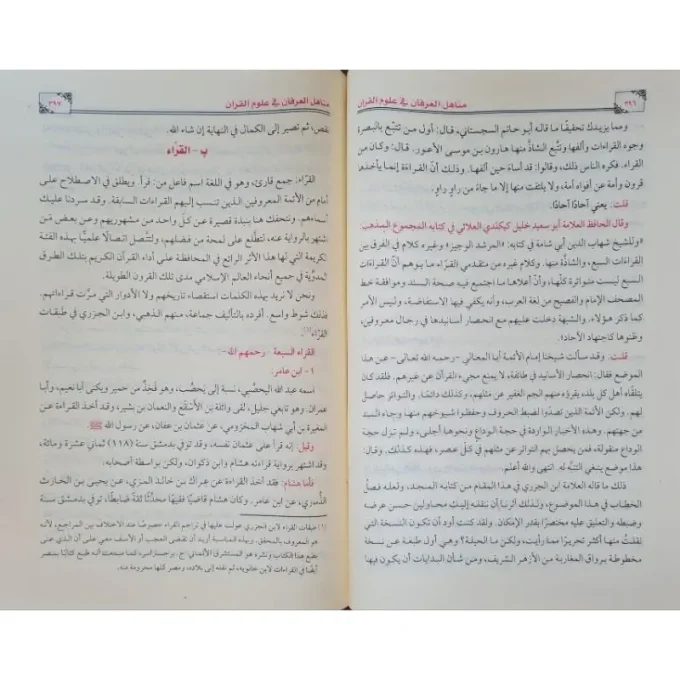 ٣٩٦
مناهل العرفان في علوم القرآن
ومما يزيدك تحقيقًا ما قاله أبو حاتم السجستاني، قال: أول من تتبع بالبصرة
وجوه القراءات وألفها وتتبع الشاذ منها هارون بن موسى الأعور. قال: وكان من
القراء. فكره الناس ذلك، وقالوا: قد أساء حين ألفها. وذلك أن القراءة إنما يأخذها
قرون وأمة عن أفواه أمة، ولا يلتفت منها إلا ما جاء من راوٍ راوٍ.
قلت: يعني آحادًا آحادًا.
وقال الحافظ العلامة أبو سعيد خليل كيكلدي العلائي في كتابه المجموع المذهب:
«وللشيخ شهاب الدين أبي شامة في كتابه: «المرشد الوجيز» وغيره كلام في الفرق بين
القراءات السبع، والشاذة منها. وكلام غيره من متقدمي القراء ما يوهم أنّ القراءات
السبع ليست متواترة كلها، وأنّ أعلاها ما اجتمع فيه صحة السند وموافقة خط
المصحف الإمام والفصيح من لغة العرب، وأنه يكفي فيها الاستفاضة، وليس الأمر
كما ذكر هؤلاء. والشبهة دخلت عليهم مع انحصار أسانيدها في رجال معروفين،
وظنوها كاجتهاد الآحاد.
قلت: وقد سألت شيخنا إمام الأئمة أبا المعالي -رحمه الله تعالى- عن هذا
الموضع فقال: انحصار الأسانيد في طائفة، لا يمنع مجيء القرآن عن غيرهم. فلقد كان
يتلقاه أهل كل بلد، يقرؤه منهم الجم الغفير عن مثلهم، وكذلك دائمًا. والتواتر حاصل
لهم. ولكن الأئمة الذين تصدوا لضبط الحروف وحفظوا شيوخهم منها وجاء السند
من جهتهم. وهذه الأخبار الواردة في حجة الوداع ونحوها أجلى، ولم تزل حجة
الوداع منقولة، فمن يحصل بهم التواتر عن مثلهم في كل عصر، فهذه كذلك. وقال:
هذا موضع ينبغي التنبه له. انتهى والله أعلم.
ذلك ما قاله العلامة ابن الجزري في هذا المقام من كتابه المنجد، ولعله فصل
الخطاب في هذا الموضوع، ولذلك آثرنا أن ننقله إليك محاولين حسن عرضه
وضبطه والتعليق عليه مختصرًا بقدر الإمكان. ولقد كنت أود أن تكون النسخة التي
نقلت منها أكثر تحريرًا مما رأيت، ولكن ما الحيلة؟ وهي أول طبعة عن نسخة
مخطوطة برواق المغاربة من الأزهر الشريف، ومن شأن البدايات أن يكون فيها
مناهل العرفان في علوم القرآن
٣٩٧
نقص، ثم تصير إلى الكمال في النهاية إن شاء الله.
ب - القرّاء
القرّاء: جمع قارئ، وهو في اللغة اسم فاعل من: قرأ. ويطلق في الاصطلاح على
إمام من الأئمة المعروفين الذين تنسب إليهم القراءات السابقة. وقد سردنا عليك
أسماءهم. ونتحفك هنا بنبذة قصيرة عن كل واحد من مشهوريهم وعن بعض من
اشتهر بالرواية عنه، لتطّلع على لمحة من فضلهم، ولتتصل اتصالًا علميًا بهذه الفئة
الكريمة التي لها هذا الأثر الرائع في المحافظة على أداء القرآن الكريم بتلك الطرق
المدوّية في جميع أنحاء العالم الإسلامي مدى تلك القرون الطويلة.
ونحن لا نريد بهذه الكلمات استقصاء تاريخهم ولا الأدوار التي مرّت قراءاتهم.
فذلك شوط واسع. أفرده بالتأليف جماعة، منهم الذهبي، وابن الجزري في طبقات
القرّاء(١).
القراء السبعة -رحمهم الله-
١- ابن عامر:
اسمه عبد الله اليحصُبي، نسبة إلى يحصُب، وهو فَخِذٌ من حمير ويكنى أبا نعيم، وأبا
عمران. وهو تابعي جليل، لقى واثلة بن الأسقع والنعمان بن بشير، وقد أخذ القراءة عن
المغيرة بن أبي شهاب المخزومي، عن عثمان بن عفان، عن رسول الله ﷺ.
وقيل: إنه قرأ على عثمان نفسه. وقد توفي بدمشق سنة (١١٨) ثماني عشرة ومائة،
وقد اشتهر برواية قراءته هشام وابن ذكوان، ولكن بواسطة أصحابه.
فأما هشام: فقد أخذ القراءة عن عراك بن خالد المزي، عن يحيى بن الحارث
الذماري، عن ابن عامر. وكان هشام قاضيًا فقيهًا محدّثًا ثقة ضابطًا، توفي بدمشق سنة
(١) طبقات القراء لابن الجزري عولت عليها في تراجم القراء خصوصًا عند الاختلاف بين المراجع، لأنه
هو المعروف بالمحقق. وبهذه المناسبة أريد أن تقضى العجب أو الأسف معي على أن الذي عنى
بطبع هذا الكتاب ونشره هو المستشرق الألماني ج. برجستراسر كما صنعت أنه طبع كتابًا بمصر
أيضًا في القراءات لابن خالويه، ثم نقله إلى بلاده، ومصر كلها محرومة منه.